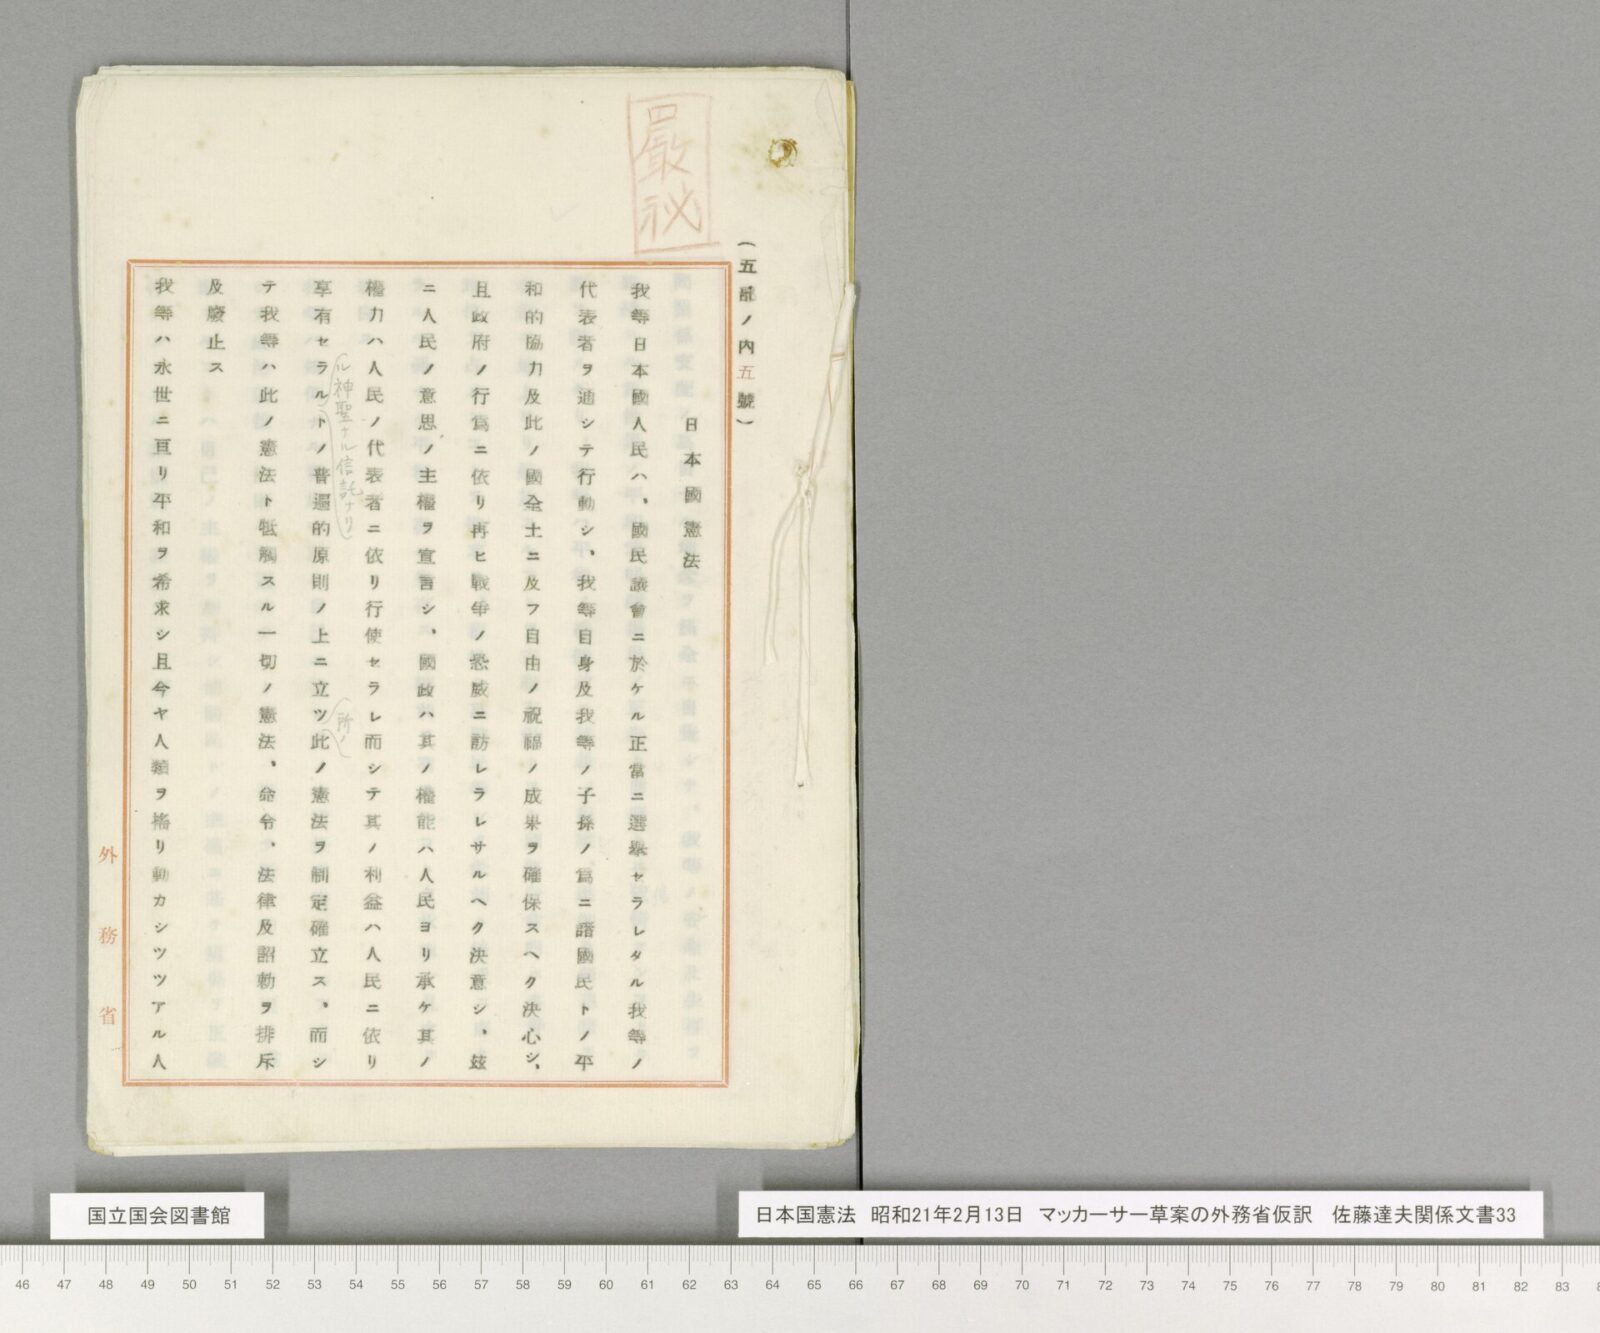 嚴秘
(五號ノ内五號)
日本國憲法
我等日本國人民ハ、國民議會ニ於ケル正當ニ選擧セラレタル我等ノ
代表者ヲ通シテ行動シ、我等自身及我等ノ子孫ノ爲ニ諸國民トノ平
和的協力及此ノ國全土ニ及フ自由ノ祝福ノ成果ヲ確保スヘク決心シ、
且政府ノ行爲ニ依リ再ヒ戰爭ノ恐威ニ訪レラレサルヘク決意シ、玆
ニ人民ノ意思ノ主權ヲ宣言シ、國政ハ其ノ權能ハ人民ヨリ承ケ其ノ
權力ハ人民ノ代表者ニ依リ行使セラレ而シテ其ノ利益ハ人民ニ依リ
ル神聖ナル信託ナリ
所ノ
享有セラルトノ普遍的原則ノ上ニ立ツ此ノ憲法ヲ制定確立ス、而シ
テ我等ハ此ノ憲法ト牴觸スル一切ノ憲法、命令、法律及詔勅ヲ排斥
及廢止ス
我等ハ永世ニ亘リ平和ヲ希求シ且今ヤ人類ヲ搖リ動カシツツアル人
外務省
国立国会図書館
日本国憲法 昭和21年2月13日 マッカーサー草案の外務省仮訳 佐藤達夫関係文書33
46 47 48 49 50 51 52 53 54 55 56 57 58 59 60 61 62 63 64 65 66 67 68 69 70 71 72 73 74 75 76 77 78 79 80 81 82 83